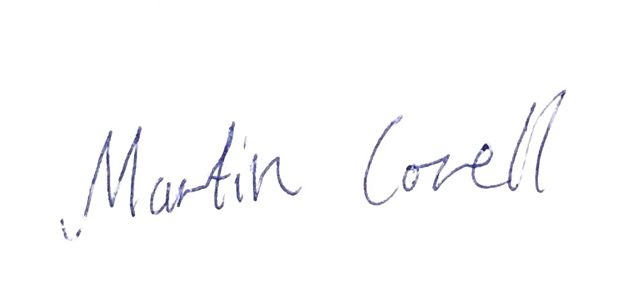 Martin Corell